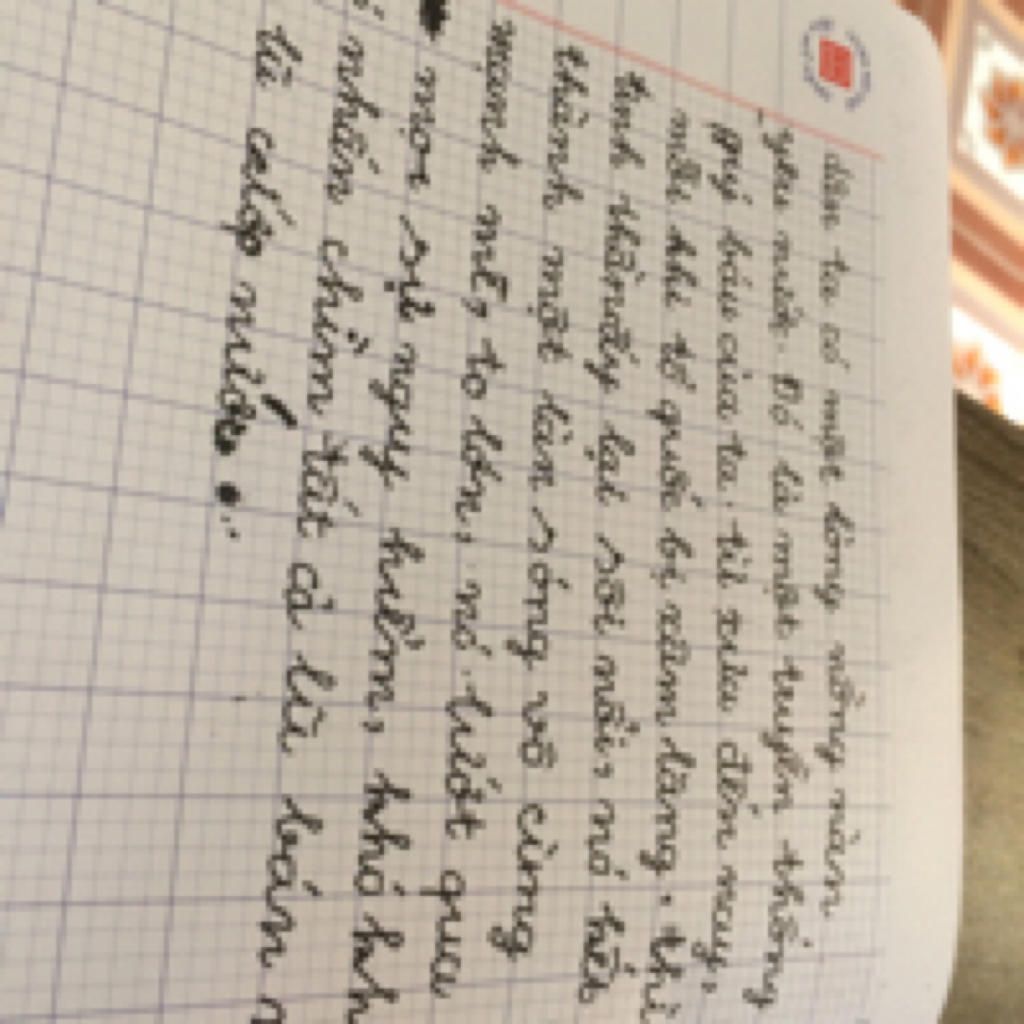 dân ta có một lòng nồng nàn
yêu nước. Đó là một truyền thống
quý báu của ta. từ xưa đến nay,
mỗi khi tổ quốc bị xâm lăng. thì
tinh thần ấy lại sôi nổi, nó kết
thành một làn sóng vô cùng
mạnh mẽ, to lớn, nó lướt qua
mọi sự nguy hiểm, khó kh
nhấn chìm tất cả lũ bán n
lũ cướp nước."